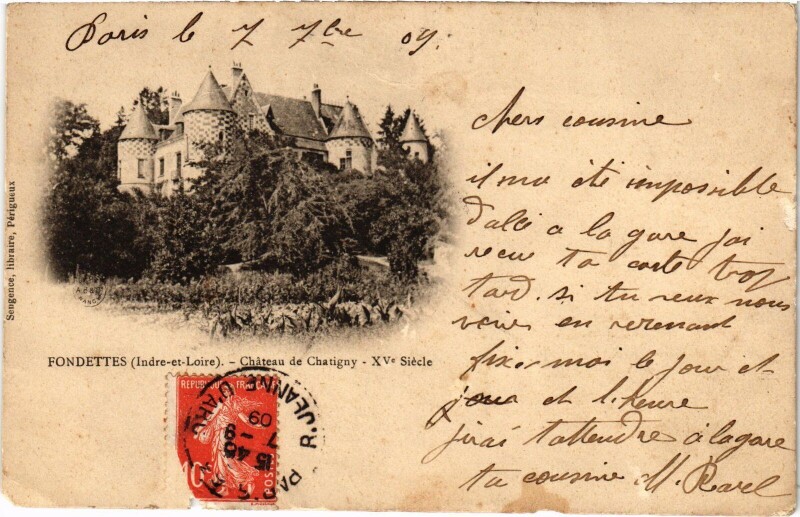 Paris le 7 7bre 09.
Sengence, libraire, Périgueux
FONDETTES (Indre-et-Loire). - Château de Chatigny - XVe Siècle
chers cousine
il ma été impossible
dalée a la gare jai
recue ta carte trop
tard. si tu veux nous
voire en revenant
fixer moi le jour et
et l'heure
jirai tattendre à la gare
ta cousine M.
REPUBLIQUE FRANÇAISE
PARIS R. JEANNE D'ARC
15 45
7 - 9
09